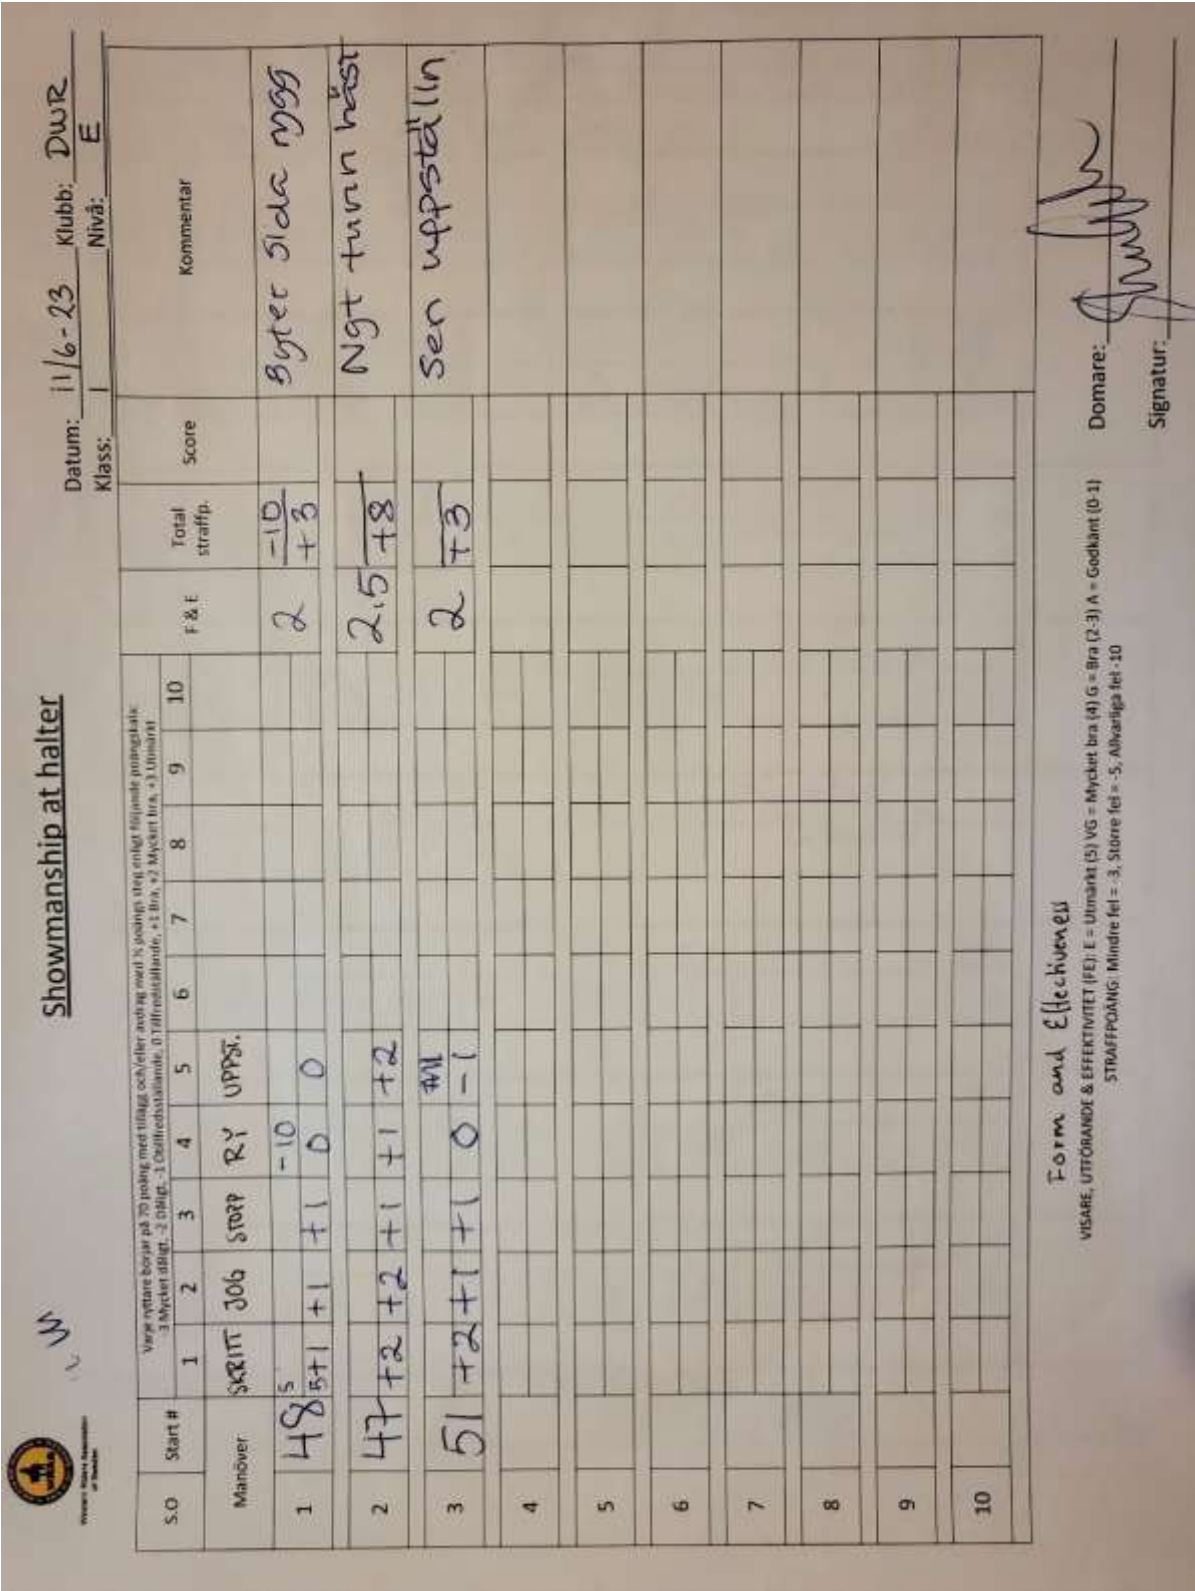 Showmanship at halter
Western Riders Association
of Sweden
Datum: 11/6-23 Klubb: DWR
Klass: 1 Nivå: E
Varje ryttare börjar på 70 poäng med tillägg och/eller avdrag med ½ poängs steg enligt följande poängskala:
-3 Mycket dåligt, -2 Dåligt, -1 Otillfredsställande, 0 Tillfredställande, +1 Bra, +2 Mycket bra, +3 Utmärkt
S.O Start # 1 2 3 4 5 6 7 8 9 10 F & E Total straffp. Score Kommentar
Manöver SKRITT JOG STOPP RY UPPST.
-10 -10
1 48 +1 +1 +1 0 0 2 +3 Byter sida rygg
2 47 +2 +2 +1 +1 +2 2,5 +8 Ngt tunn häst
3 51 +2 +1 +1 0 -1 2 +3 Sen uppställn
4
5
6
7
8
9
10
Form and Effectiveness
VISARE, UTFÖRANDE & EFFEKTIVITET (FE): E = Utmärkt (5) VG = Mycket bra (4) G = Bra (2-3) A = Godkänt (0-1)
STRAFFPOÄNG: Mindre fel = -3, Större fel = -5, Allvarliga fel -10
Domare:
Signatur: